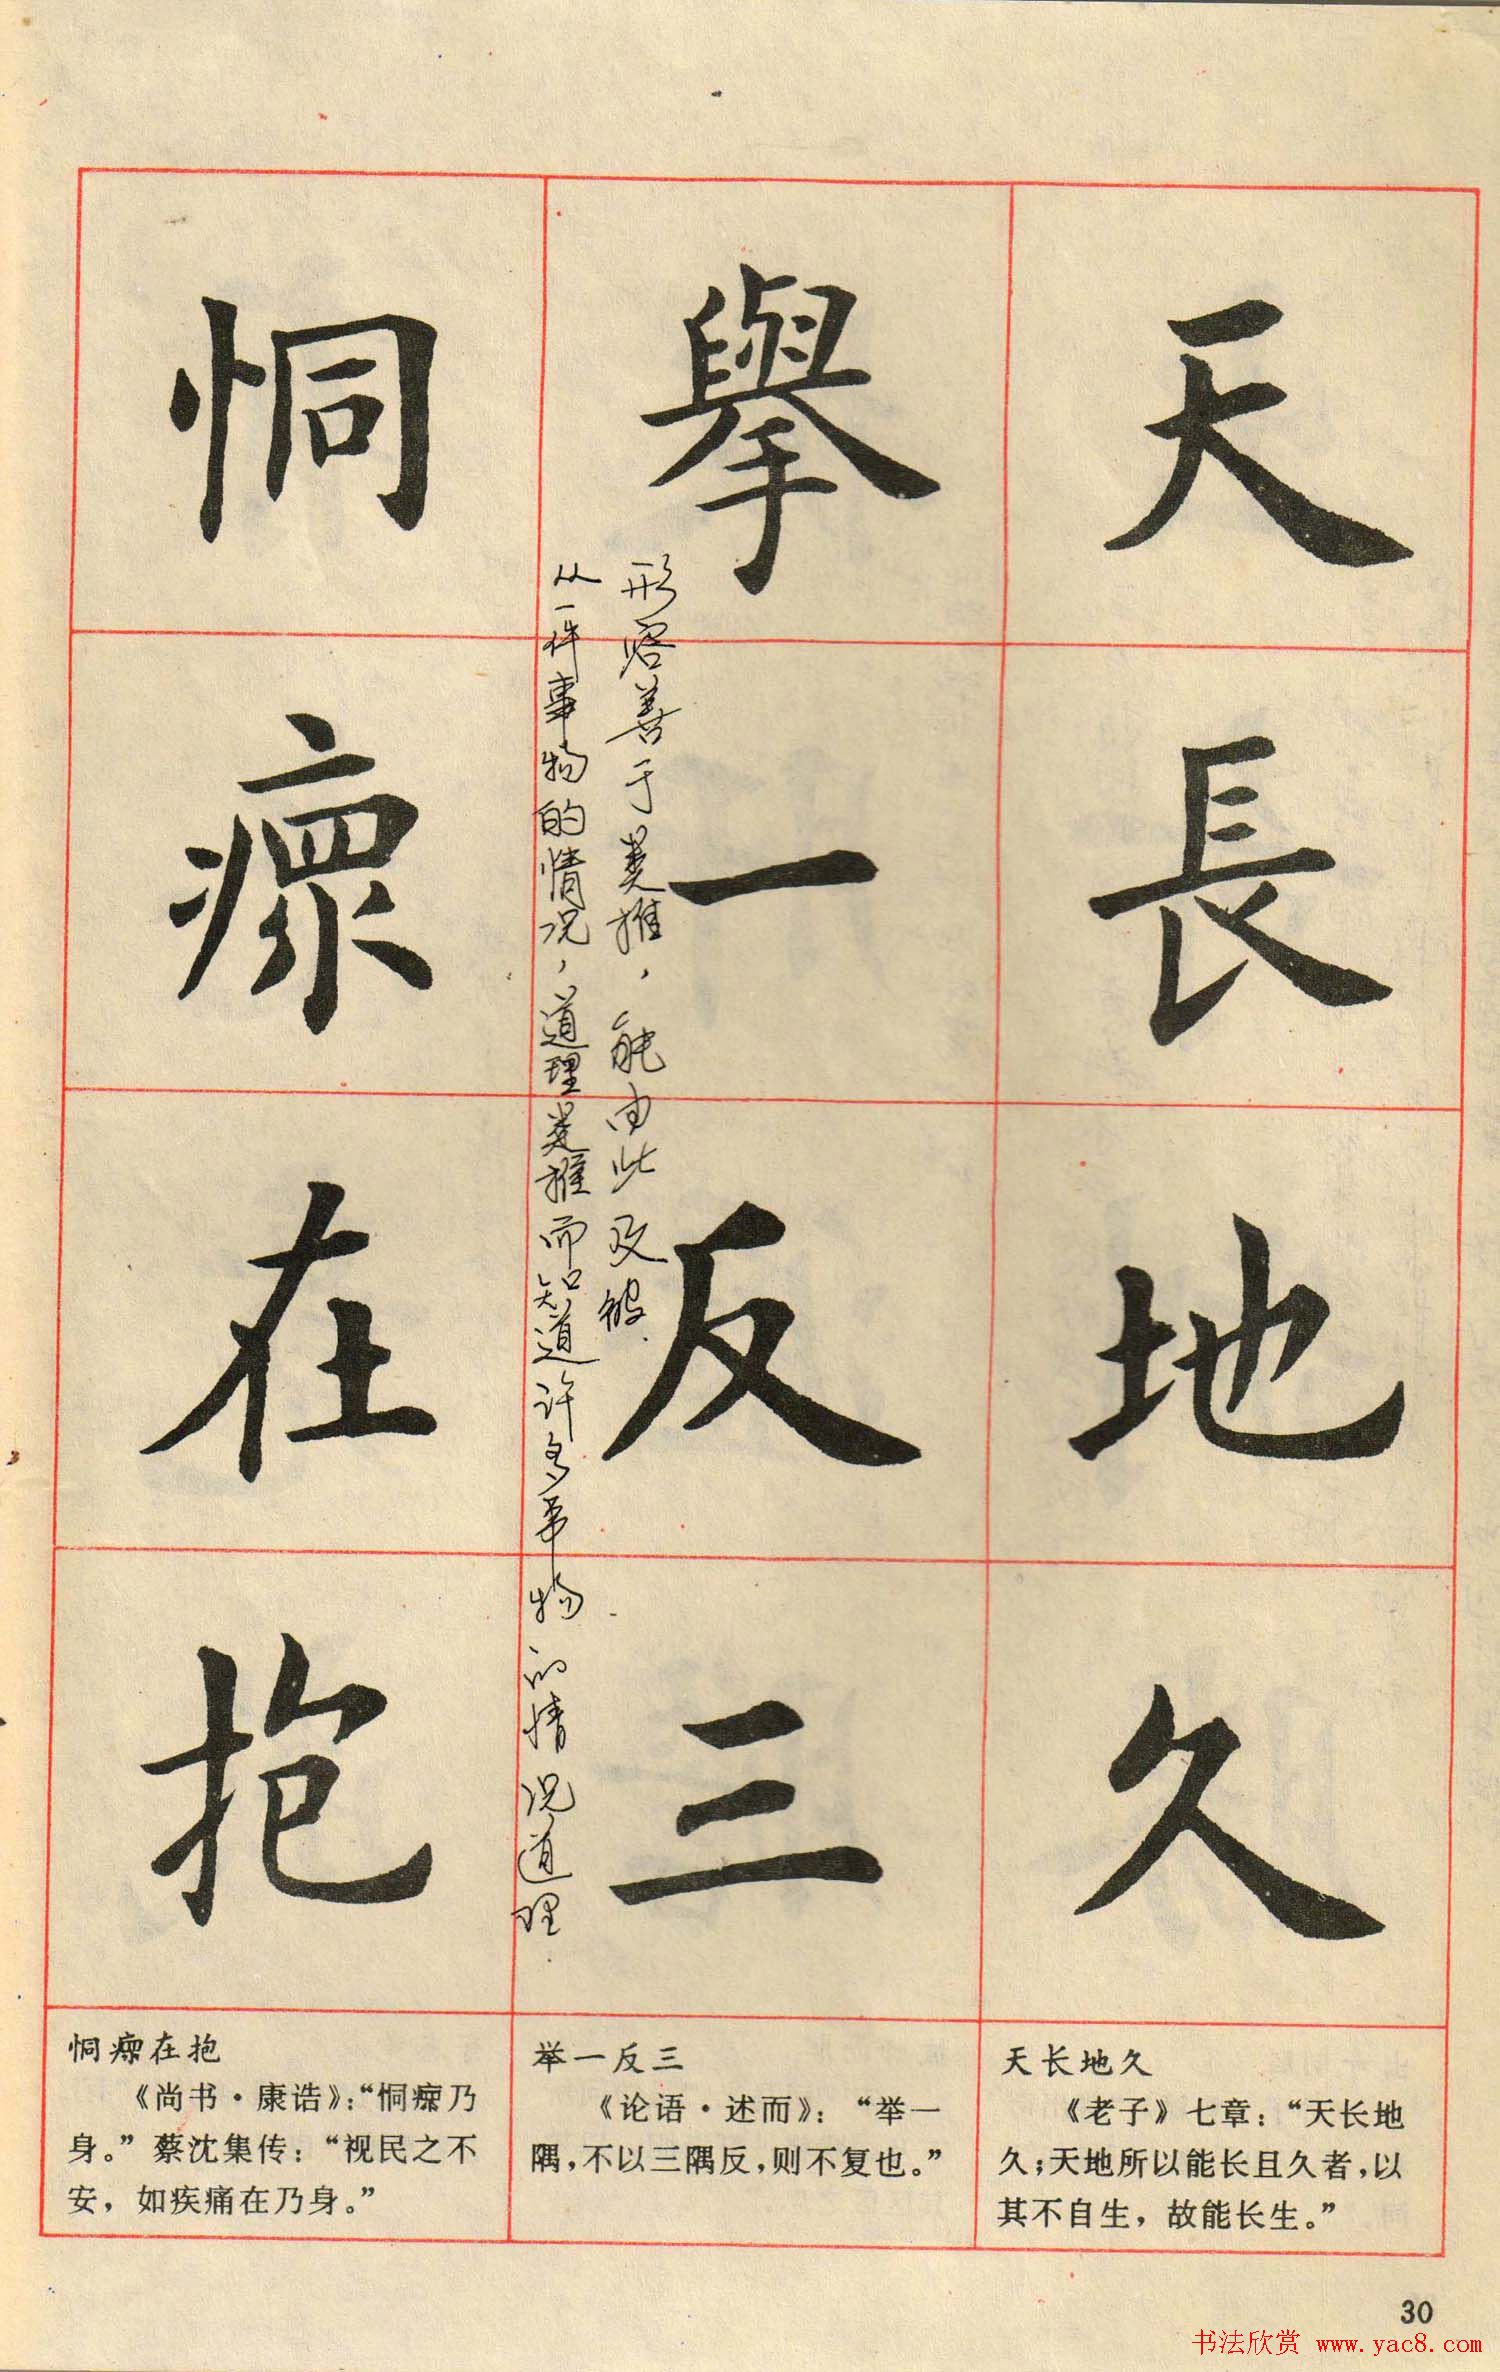 天長地久
舉一反三
形容善于类推，能由此及彼.
从一件事物的情况，道理类推而知道许多事物的情况道理.
恫瘝在抱
天长地久
《老子》七章：“天长地
久；天地所以能长且久者，以
其不自生，故能长生。”
举一反三
《论语·述而》：“举一
隅，不以三隅反，则不复也。”
恫瘝在抱
《尚书·康诰》：“恫瘝乃
身。”蔡沈集传：“视民之不
安，如疾痛在乃身。”
30
书法欣赏 www.yac8.com